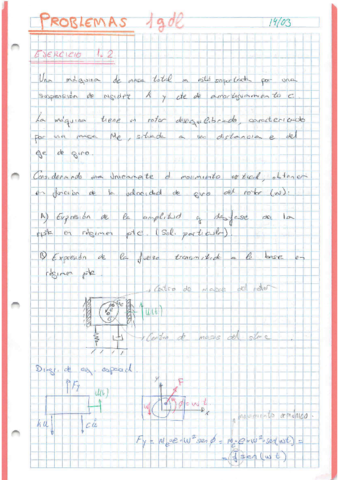 PROBLEMAS 1gdl
14/03
EJERCICIO 1.2
Una máquina de masa total m está soportada por una
suspensión de rigidez K y de amortiguamiento c.
La máquina tiene un rotor desequilibrado, caracterizado
por una masa Me, situada a una distancia e del
eje de giro.
Considerando únicamente el movimiento vertical, obtener
en función de la velocidad de giro del rotor (ω):
A) Expresión de la amplitud y desfase de la
en régimen pte. (Sol. particular)
B) Expresión de la fuerza transmitida a la base en
régimen pte
Centro de masas del rotor
u(t)
Centro de masas del
Diag. de
Fy
u(t)
Ku
cu̇
y
F
x
Fy = Me·e·ω²·sen φ = Me·e·ω²·sen(ωt) =
= f sen(ωt)